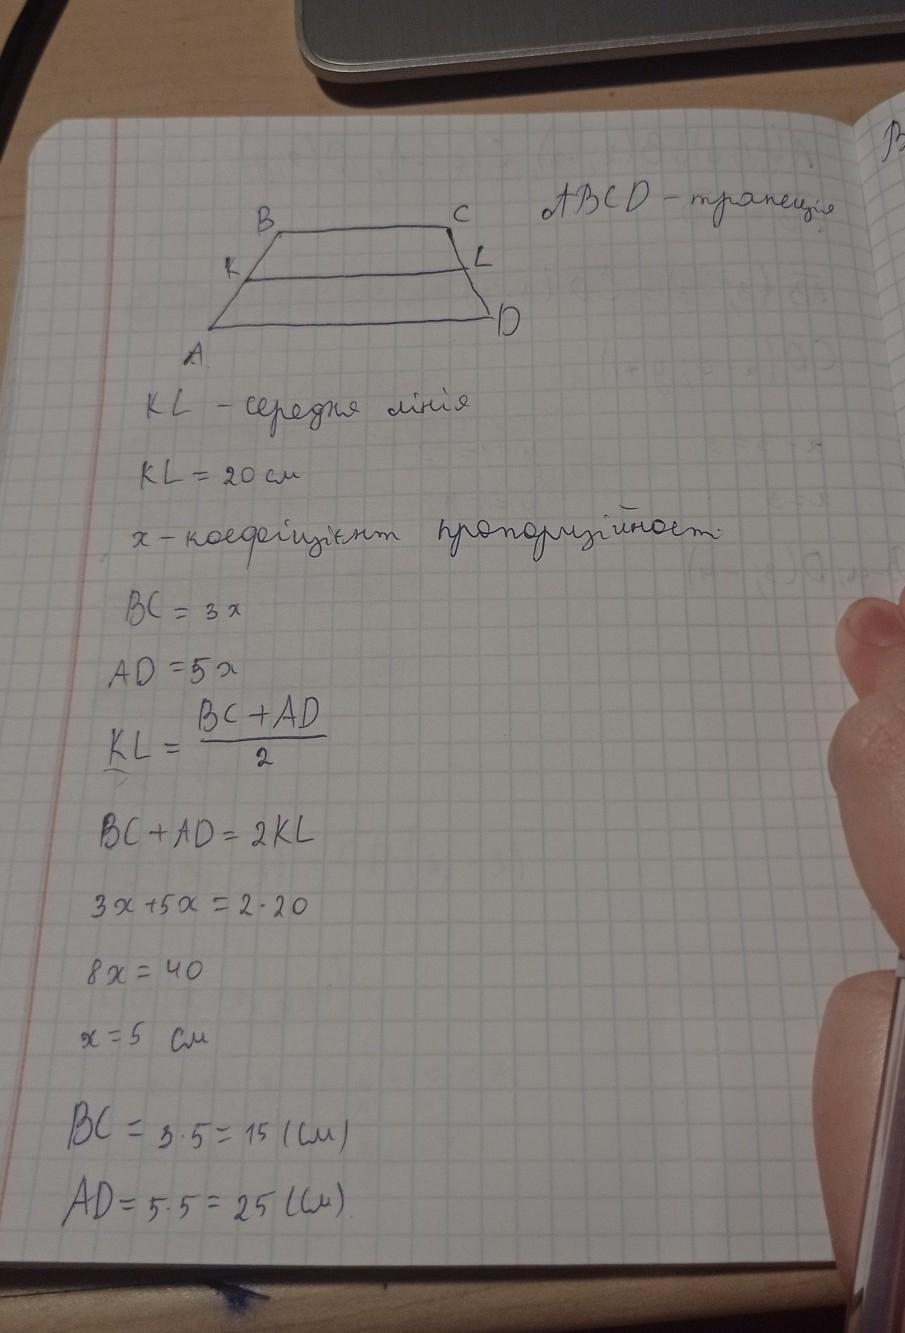 ABCD - трапеція
B
C
K
L
A
D
KL - середня лінія
KL = 20 см
x - коефіцієнт пропорційност
BC = 3x
AD = 5x
KL = (BC + AD) / 2
BC + AD = 2KL
3x + 5x = 2 · 20
8x = 40
x = 5 см
BC = 3 · 5 = 15 (см)
AD = 5 · 5 = 25 (см)